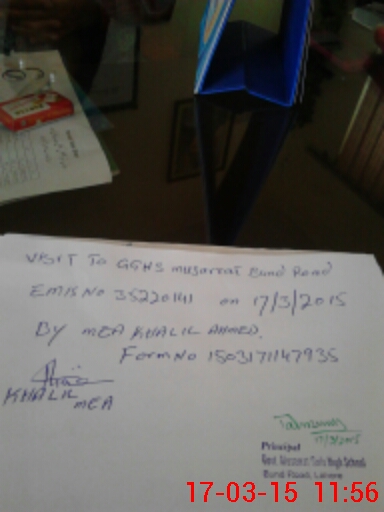 VISIT To GGHS musarrat Bund Road
EMIS No 35220141 on 17/3/2015
By MEA KHALIL AHMED.
Form No 1503171147935
KHALIL
MEA
17/3/2015
Principal
Govt. Girls High School
Bund Road, Lahore
17-03-15 11:56